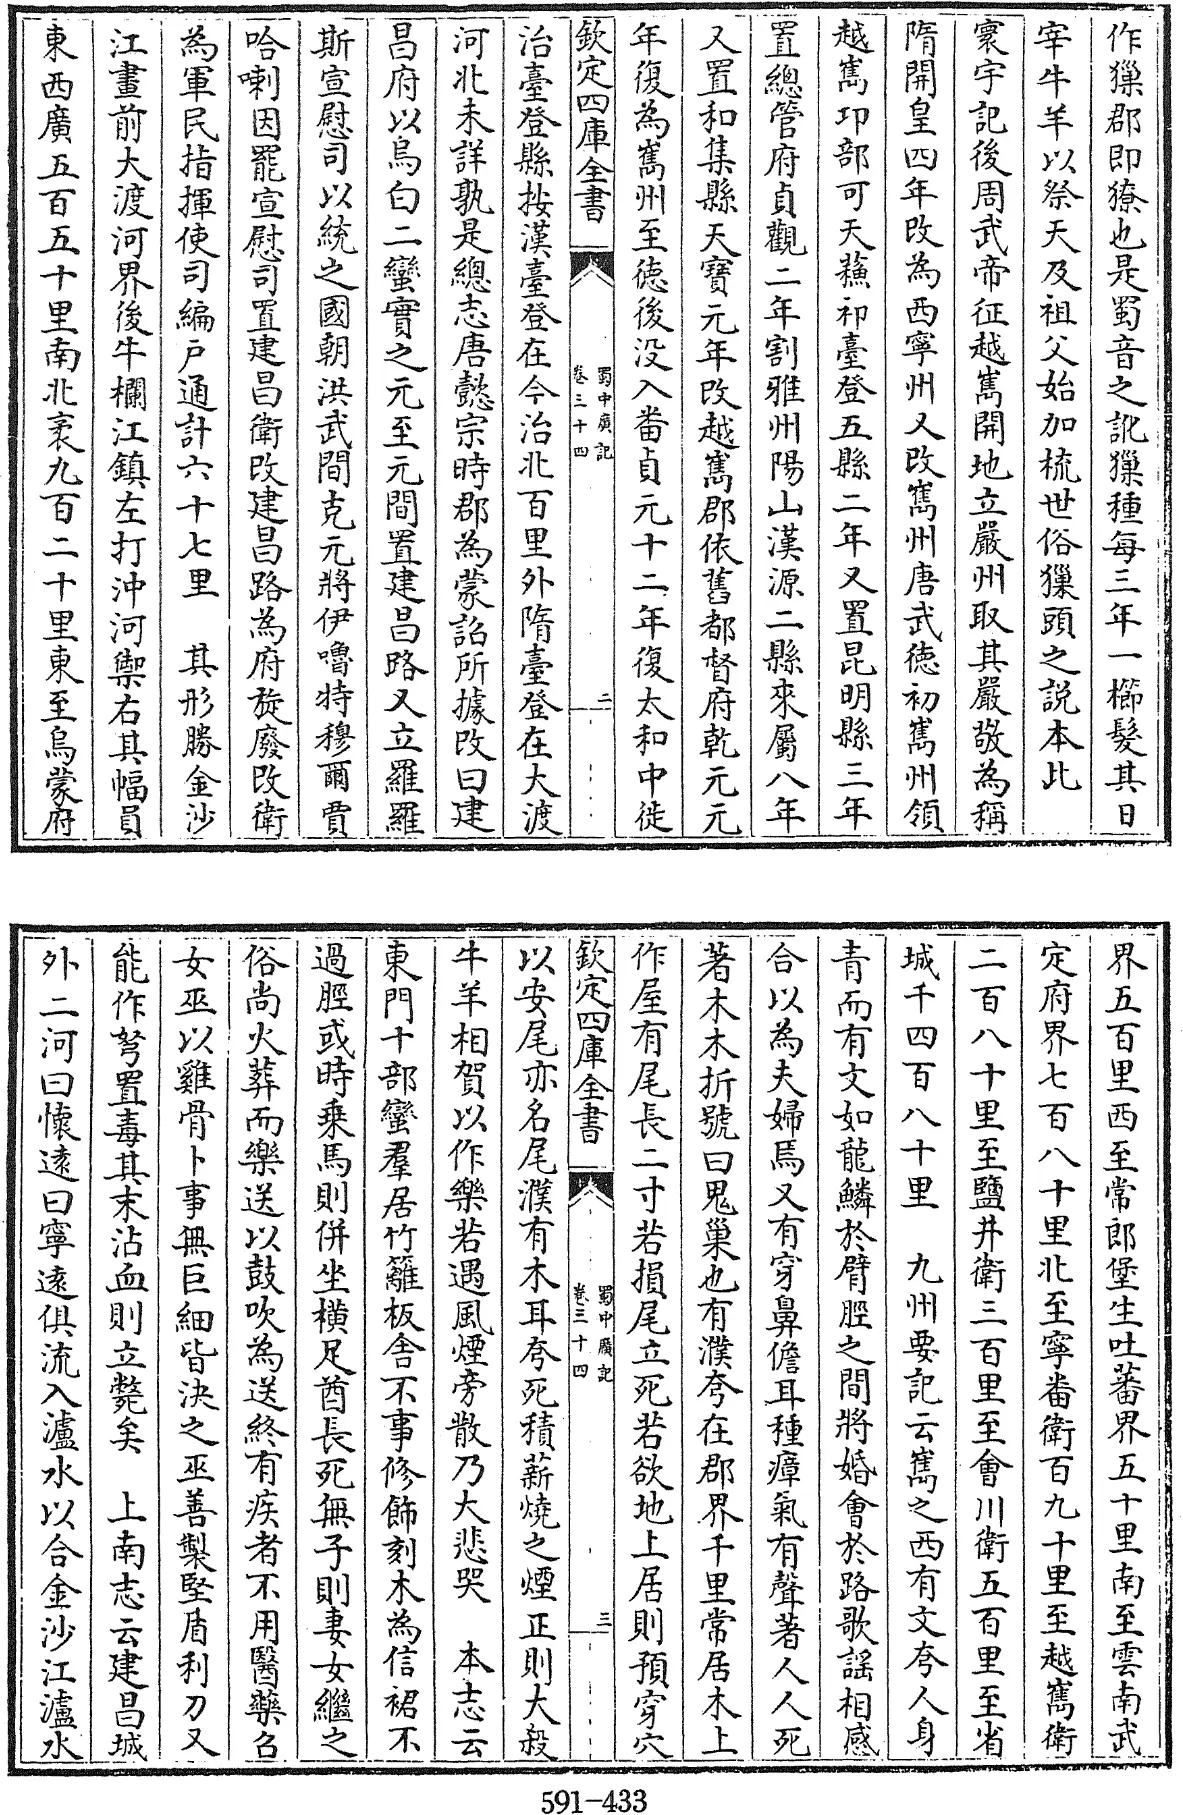 作獿郡即獠也是蜀音之訛獿種每三年一櫛髮其日
宰牛羊以祭天及祖父始加梳世俗獿頭之説本此
寰宇記後周武帝征越嶲開地立嚴州取其嚴敬為稱
隋開皇四年改為西寧州又改嶲州唐武徳初嶲州領
越嶲卭部可天蘓祁臺登五縣二年又置昆明縣三年
置總管府貞觀二年割雅州陽山漢源二縣來屬八年
又置和集縣天寶元年改越嶲郡依舊都督府乾元元
年復為嶲州至徳後没入畨貞元十二年復太和中徙
欽定四庫全書
蜀中廣記
卷三十四
二
治臺登縣按漢臺登在今治北百里外隋臺登在大渡
河北未詳孰是總志唐懿宗時郡為蒙詔所據改曰建
昌府以烏白二蠻實之元至元間置建昌路又立羅羅
斯宣慰司以統之國朝洪武間克元將伊嚕特穆爾賈
哈喇因罷宣慰司置建昌衛改建昌路為府旋廢改衛
為軍民指揮使司編户通計六十七里　其形勝金沙
江畫前大渡河界後牛欄江鎮左打沖河禦右其幅員
東西廣五百五十里南北袤九百二十里東至烏蒙府
界五百里西至常郎堡生吐蕃界五十里南至雲南武
定府界七百八十里北至寧畨衛百九十里至越嶲衛
二百八十里至鹽井衛三百里至會川衛五百里至省
城千四百八十里　九州要記云嶲之西有文夸人身
青而有文如龍鱗於臂脛之間將婚會於路歌謡相感
合以為夫婦焉又有穿鼻儋耳種瘴氣有聲著人人死
著木木折號曰鬼巢也有濮夸在郡界千里常居木上
作屋有尾長二寸若損尾立死若欲地上居則預穿穴
欽定四庫全書
蜀中廣記
卷三十四
三
以安尾亦名尾濮有木耳夸死積薪燒之煙正則大殺
牛羊相賀以作樂若遇風煙旁散乃大悲哭　本志云
東門十部蠻羣居竹籬板舍不事修飾刻木為信裙不
過脛或時乗馬則併坐横足酋長死無子則妻女繼之
俗尚火葬而樂送以鼓吹為送終有疾者不用醫藥召
女巫以雞骨卜事無巨細皆決之巫善製堅盾利刀又
能作弩置毒其末沾血則立斃矣　上南志云建昌城
外二河曰懐逺曰寧逺俱流入瀘水以合金沙江瀘水
591-433